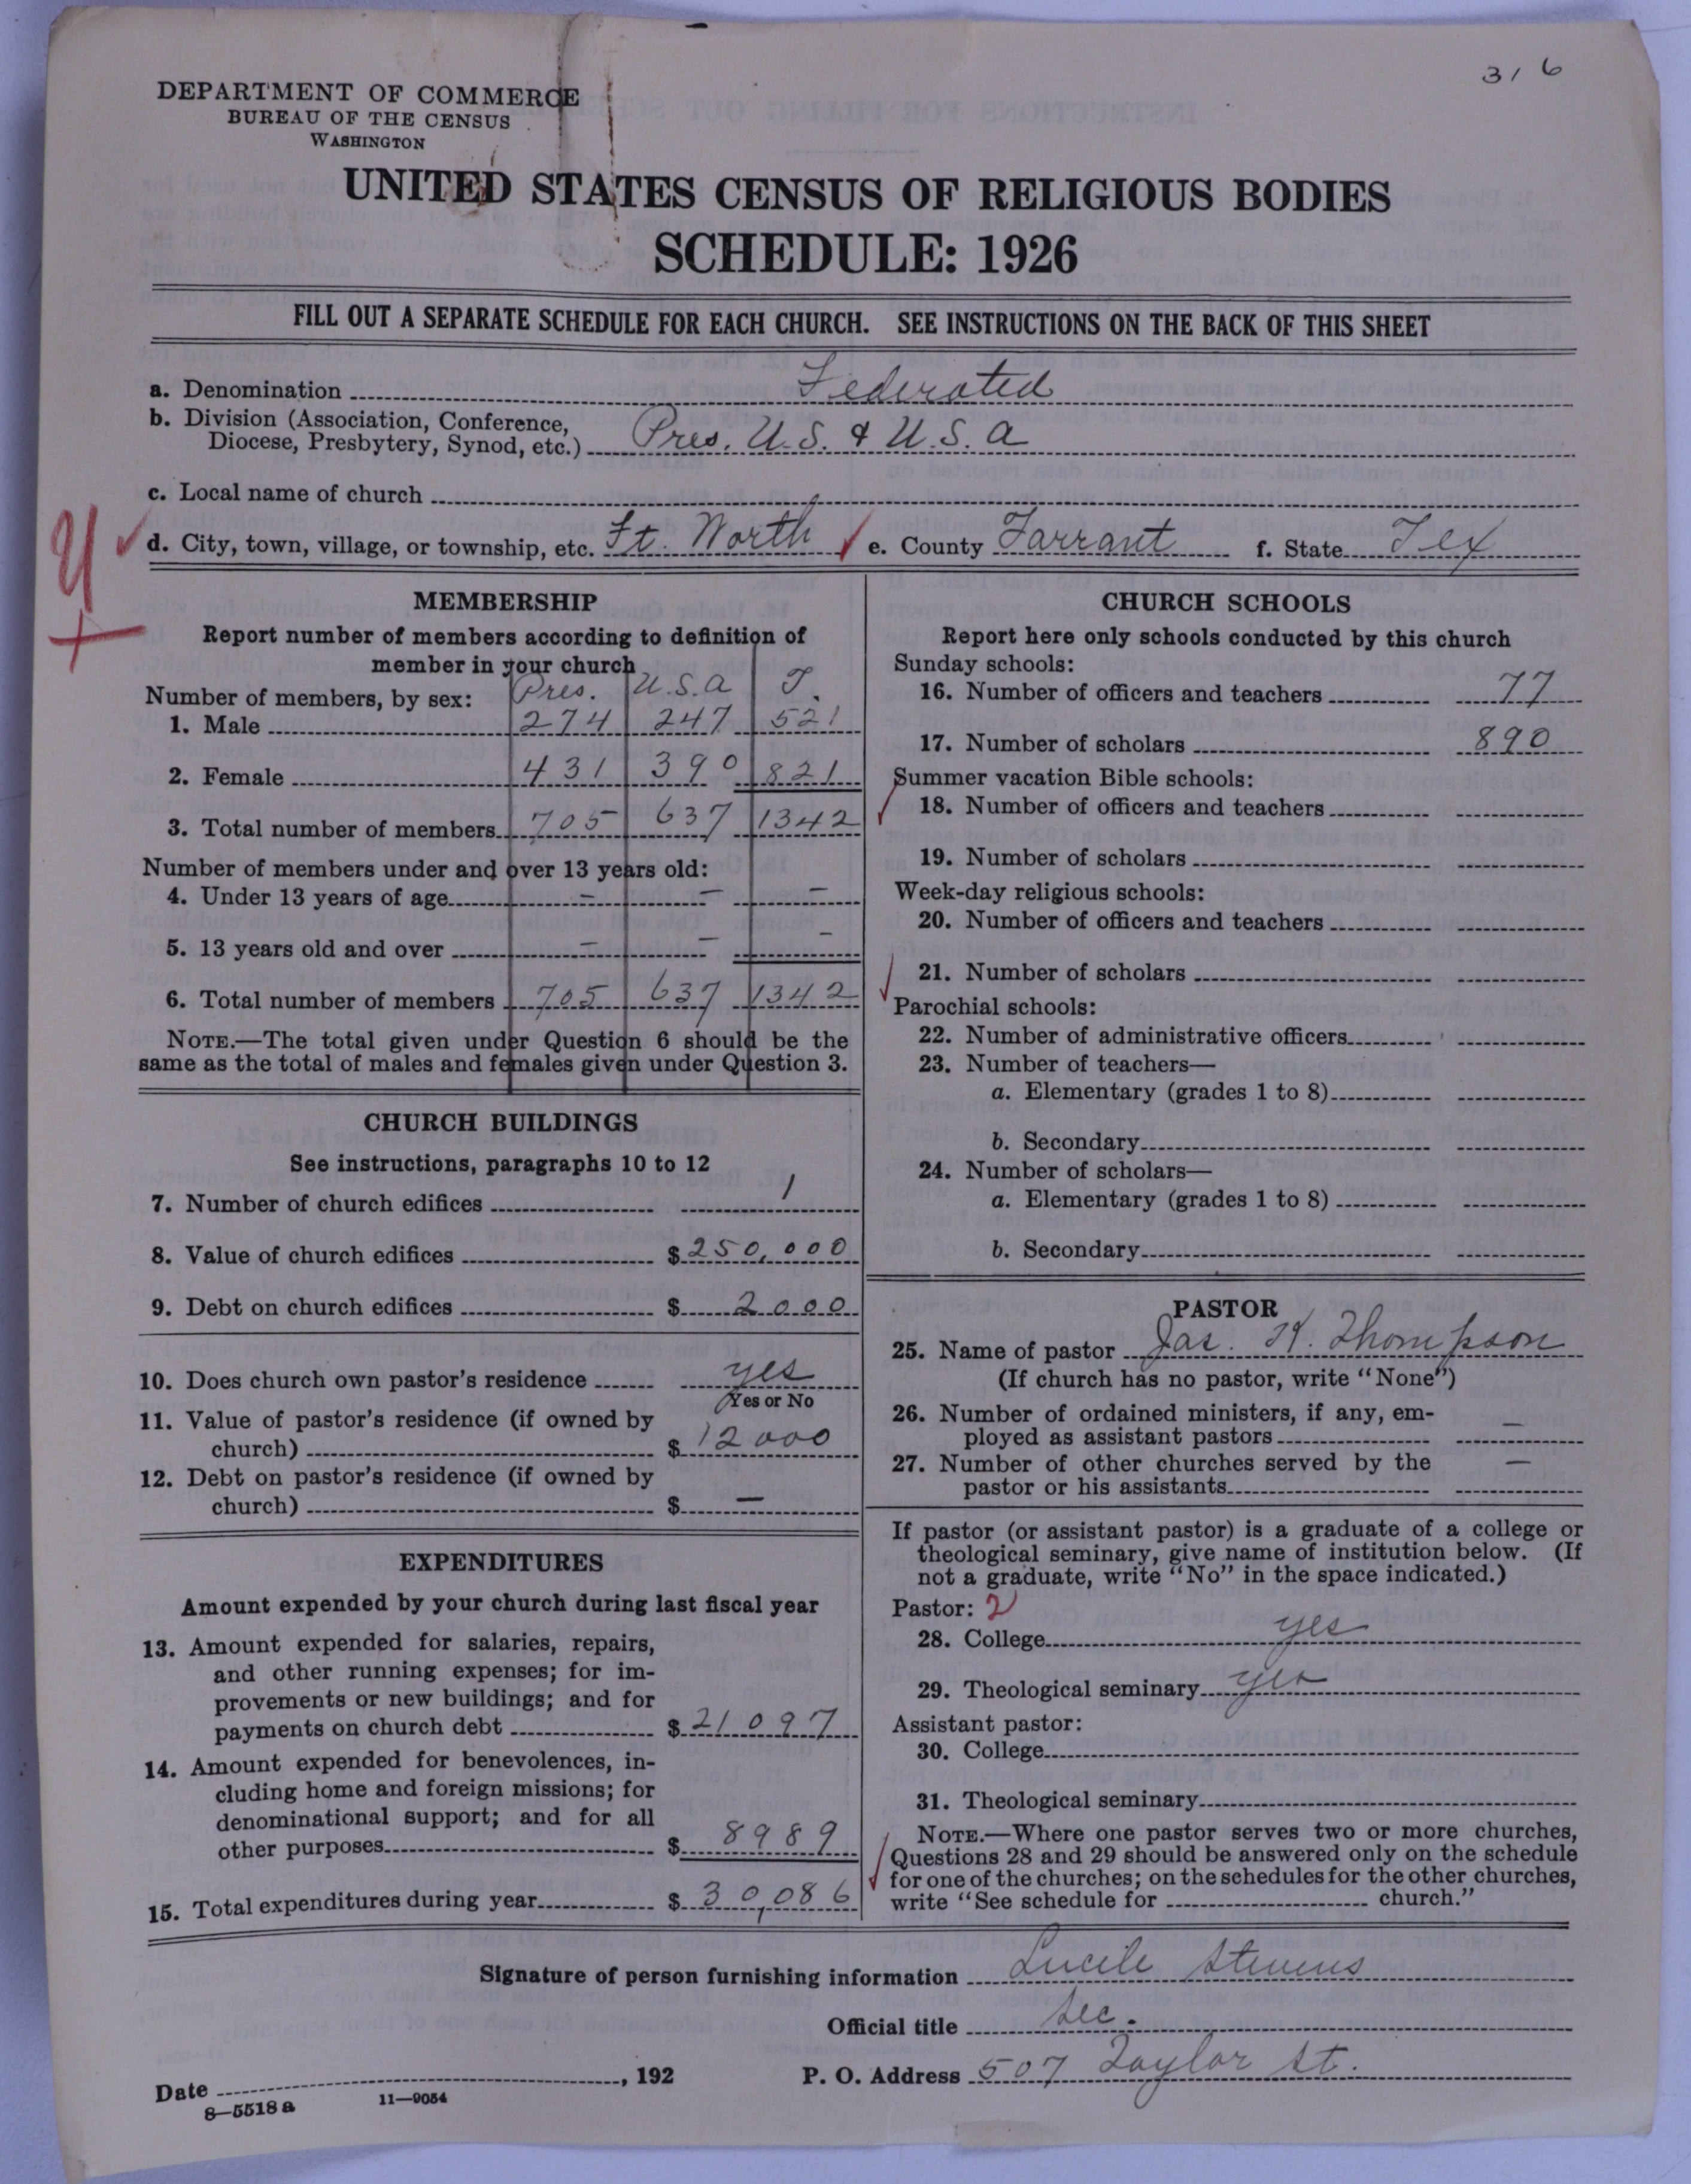 316
DEPARTMENT OF COMMERCE
BUREAU OF THE CENSUS
WASHINGTON
UNITED STATES CENSUS OF RELIGIOUS BODIES
SCHEDULE: 1926
FILL OUT A SEPARATE SCHEDULE FOR EACH CHURCH. SEE INSTRUCTIONS ON THE BACK OF THIS SHEET
a. Denomination Federated
b. Division (Association, Conference,
Diocese, Presbytery, Synod, etc.) Pres. U.S. & U.S.A
c. Local name of church
d. City, town, village, or township, etc. Ft. Worth e. County Tarrant f. State Tex
MEMBERSHIP
Report number of members according to definition of
member in your church
Number of members, by sex: Pres. U.S.A T.
1. Male 274 247 521
2. Female 431 390 821
3. Total number of members 705 637 1342
Number of members under and over 13 years old:
4. Under 13 years of age - - -
5. 13 years old and over - - -
6. Total number of members 705 637 1342
NOTE.—The total given under Question 6 should be the
same as the total of males and females given under Question 3.
CHURCH BUILDINGS
See instructions, paragraphs 10 to 12
7. Number of church edifices 1
8. Value of church edifices $ 250,000
9. Debt on church edifices $ 2000
10. Does church own pastor's residence yes
Yes or No
11. Value of pastor's residence (if owned by
church) $ 12000
12. Debt on pastor's residence (if owned by
church) $ —
EXPENDITURES
Amount expended by your church during last fiscal year
13. Amount expended for salaries, repairs,
and other running expenses; for im-
provements or new buildings; and for
payments on church debt $ 21097
14. Amount expended for benevolences, in-
cluding home and foreign missions; for
denominational support; and for all
other purposes $ 8989
15. Total expenditures during year $ 30,086
CHURCH SCHOOLS
Report here only schools conducted by this church
Sunday schools:
16. Number of officers and teachers 77
17. Number of scholars 890
Summer vacation Bible schools:
18. Number of officers and teachers
19. Number of scholars
Week-day religious schools:
20. Number of officers and teachers
21. Number of scholars
Parochial schools:
22. Number of administrative officers
23. Number of teachers—
a. Elementary (grades 1 to 8)
b. Secondary
24. Number of scholars—
a. Elementary (grades 1 to 8)
b. Secondary
PASTOR
25. Name of pastor Jas. K. Thompson
(If church has no pastor, write "None")
26. Number of ordained ministers, if any, em-
ployed as assistant pastors —
27. Number of other churches served by the
pastor or his assistants —
If pastor (or assistant pastor) is a graduate of a college or
theological seminary, give name of institution below. (If
not a graduate, write "No" in the space indicated.)
Pastor: 2
28. College yes
29. Theological seminary yes
Assistant pastor:
30. College
31. Theological seminary
NOTE.—Where one pastor serves two or more churches,
Questions 28 and 29 should be answered only on the schedule
for one of the churches; on the schedules for the other churches,
write "See schedule for church."
Signature of person furnishing information Lucile Stevens
Official title Sec.
Date , 192 P. O. Address 507 Taylor St.
8—5518 a 11—9054